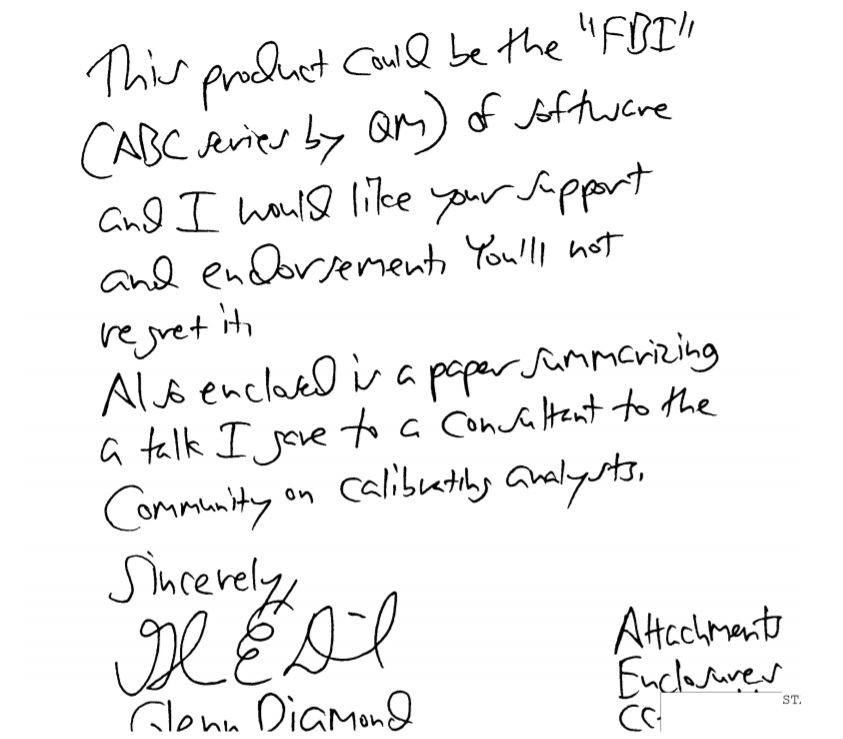 This product could be the "FBI"
(ABC series by QM) of software
and I would like your support
and endorsement. You'll not
regret it.
Also enclosed is a paper summarizing
a talk I gave to a consultant to the
Community on calibrating analysts.
Sincerely,
Glenn Diamond
Attachments
Enclosures
CC
ST.